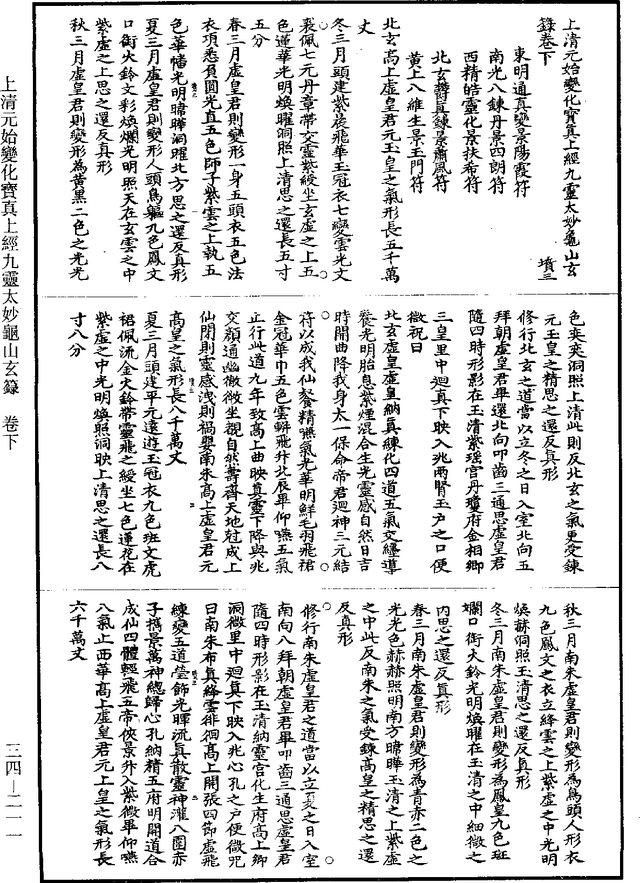 上清元始變化寶真上經九靈太妙龜山玄
籙卷下　墳三
東明通真變景陽霞符
南光八鍊丹景四朗符
西精皓靈化景扶希符
北玄欝真鍊景肅風符
黃上八維生景玉門符
北玄高上虛皇君元玉皇之氣形長五千萬
丈
冬三月頭建紫飛華玉冠衣七變雲光文
裘佩七元丹章帶交靈紫綬坐玄虛之上五
色蓮華光明煥曜洞照上清思之還長五寸
五分
春三月虛皇君則變形一身五頭衣五色法
衣項悉負圓光直五色師子紫雲之上執五
色華幡光明暐曄洞曜北方思之還反真形
夏三月虛皇君則變形人頭鳥軀九色鳳文
口銜火鈴文彩煥爛光明照天在玄雲之中
紫虛之上思之還反真形
秋三月虛皇君則變形為黃黑二色之光光
色奕奕洞照上清此則反北玄之氣更受鍊
元玉皇之精思之還反真形
修行北玄之道當以立冬之日入室北向五
拜朝虛皇君畢還北向叩齒三通思虛皇君
隨四時形影在玉清紫瑤宮丹瓊府金相鄉
三皇里中迴真下映入兆兩腎玉戶之口便
微祝曰
北玄虛皇虛皇納真鍊化四道五氣交纏導
養光明胎息紫煙混合生光靈感自然日吉
時開曲降我身太一保命帝君迴神三元結
符以成我仙餐精嚥氣光華明鮮毛羽飛裙
金冠華巾五色雲輧飛升北辰畢仰嚥五氣
止行此道九年致高上曲映真靈下降與兆
交顏通幽微微坐觀自然壽齊天地冠成上
仙閉則靈感洩則禍嬰南朱高上虛皇君元
高皇之氣形長八千萬丈
夏三月頭建平元遠遊玉冠衣九色班文虎
裙佩流金火鈴帶靈飛之綬坐七色蓮花在
紫虛之中光明煥照洞映上清思之還長八
寸八分
秋三月南朱虛皇君則變形為鳥頭人形衣
九色鳳文之衣立絳雲之上紫虛之中光明
煥赫洞照玉清思之還反真形
冬三月南朱虛皇君則變形為鳳皇九色斑
斕口銜火鈴光明煥曜在玉清之中細微之
內思之還反真形
春三月南朱虛皇君則變形為青赤二色之
光光色赫赫照明南方暐曄玉清之上紫虛
之中此反南朱之氣受鍊高皇之精思之還
反真形
修行南朱虛皇君之道當以立夏之日入室
南向八拜朝虛皇君畢叩齒三通思虛皇君
隨四時形影在玉清納靈宮化生府高上鄉
洞微里中迴真下映入兆心孔之戶便微咒
曰南朱布真絳雲徘徊高上開張四節虛飛
練變五道瑩飾光暉流真散靈神灌八圍赤
子攜景萬神總歸心孔納精五府明開道合
成仙四體輕飛五帝俠景升入紫微畢仰嚥
八氣止西華高上虛皇君元上皇之氣形長
六千萬丈
上清元始變化寶真上經九靈太妙龜山玄籙　卷下
三四—二一一